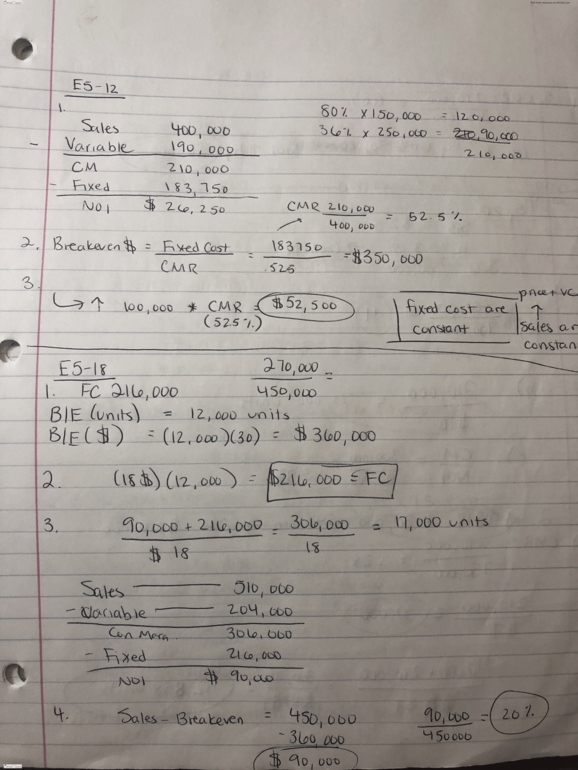 E5-12
1.
80% x 150,000 = 120,000
Sales 400,000
36% x 250,000 = 90,000
- Variable 190,000
210,000
CM 210,000
- Fixed 183,750
NOI $ 26,250
CMR 210,000 / 400,000 = 52.5%
2. Breakeven $ = Fixed Cost / CMR = 183750 / .525 = $350,000
3.
↳ ↑ 100,000 * CMR = $52,500
(52.5%)
fixed cost are
constant
price + VC
↑
sales ar
constan
E5-18
270,000 / 450,000 =
1. FC 216,000
B/E (units) = 12,000 units
B/E ($) = (12,000)(30) = $360,000
2. (18$)(12,000) = $216,000 = FC
3. 90,000 + 216,000 / $ 18 = 306,000 / 18 = 17,000 units
Sales 510,000
- Variable 204,000
Con Marg. 306,000
- Fixed 216,000
NOI $ 90,000
4. Sales - Breakeven = 450,000
- 360,000
$ 90,000
90,000 / 450000 = 20%